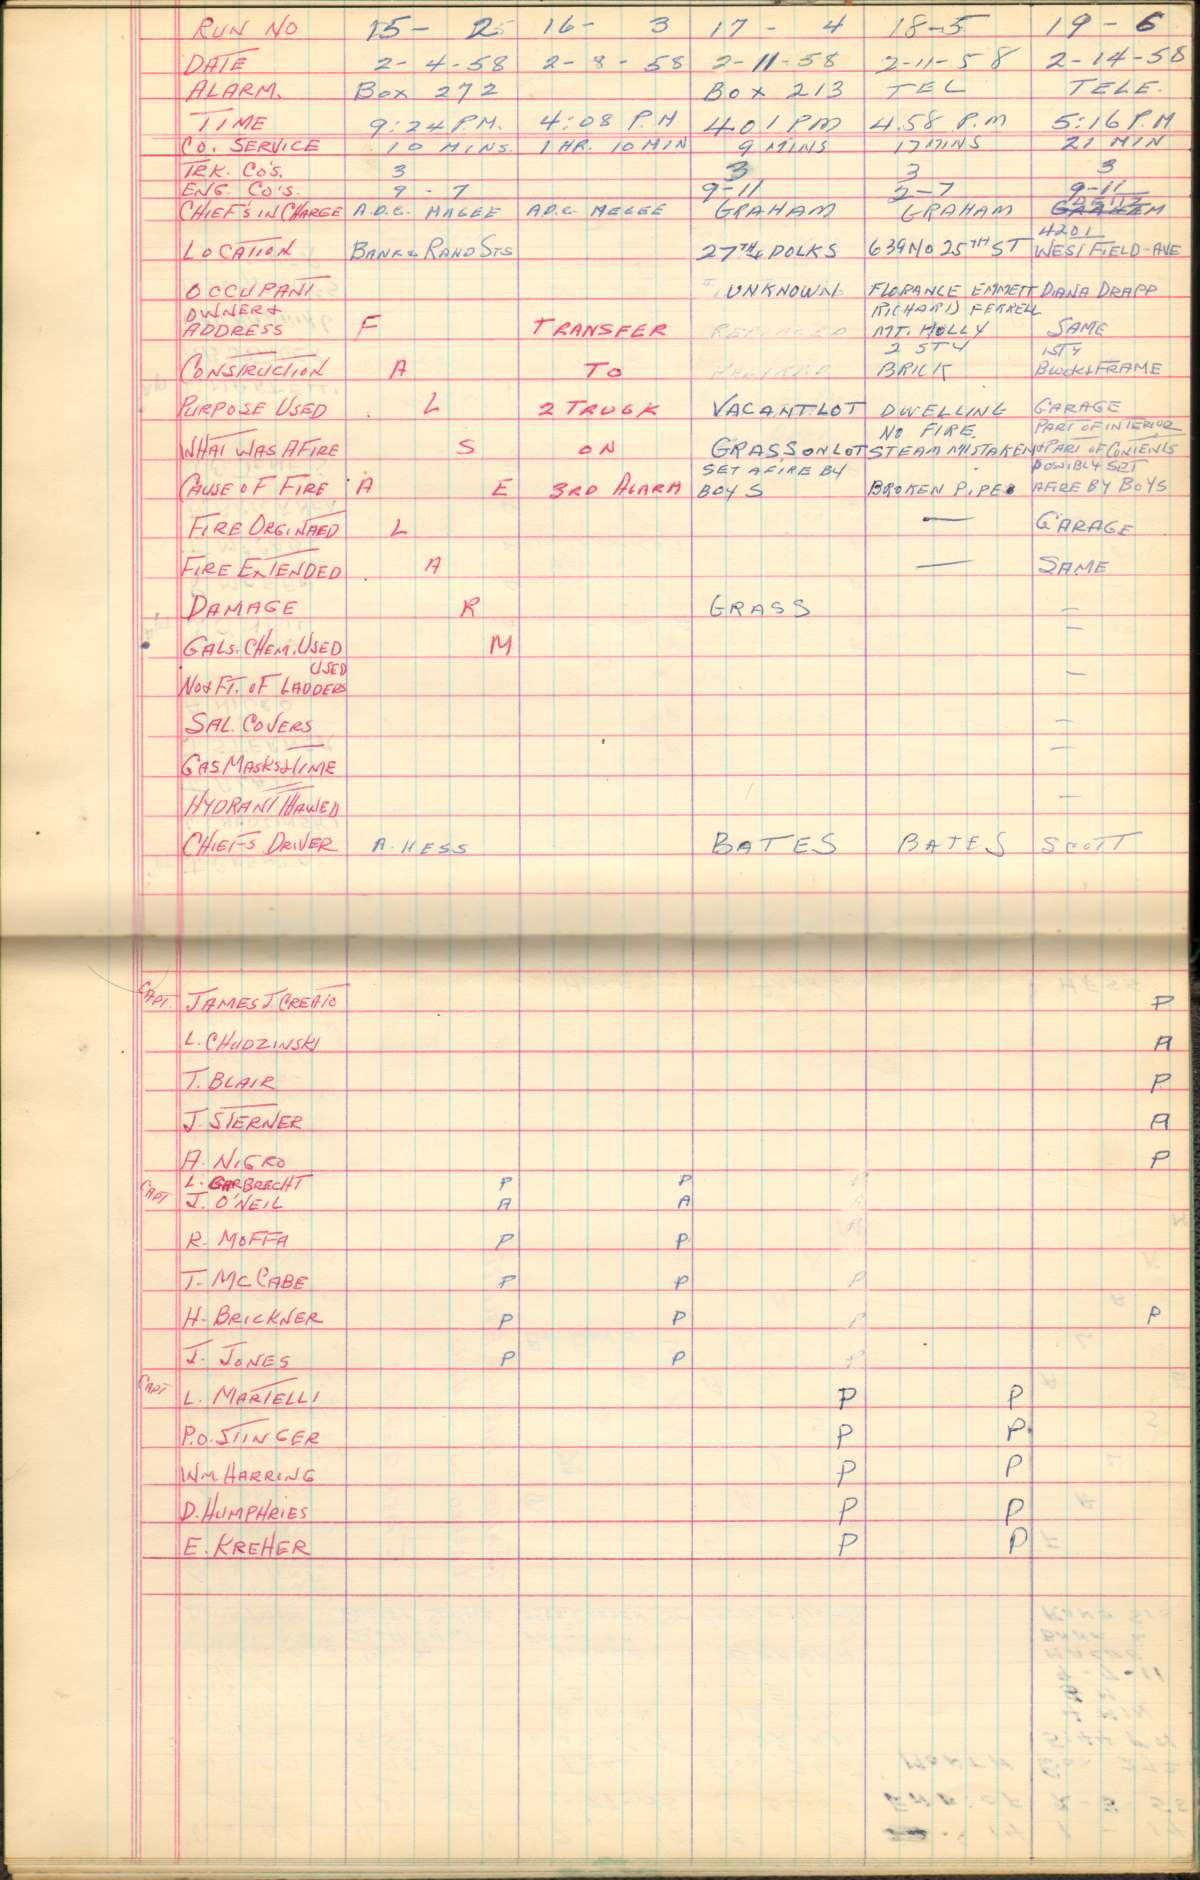 RUN NO 15- 2 16- 3 17- 4 18-5 19-6
DATE 2-4-58 2-8-58 2-11-58 2-11-58 2-14-58
ALARM. BOX 272 BOX 213 TEL TELE.
TIME 9:24 P.M. 4:08 P.M 401 PM 4.58 P.M 5:16 P.M
CO. SERVICE 10 MINS. 1 HR. 10 MIN 9 MINS 17 MINS 21 MIN
TRK. CO'S. 3 3 3 3
ENG. CO'S. 9-7 9-11 2-7 9-11
CHIEF'S IN CHARGE A.D.C. MAGEE A.D.C MEGEE GRAHAM GRAHAM GRAHAM
4201
LOCATION BANK & RAND STS 27TH & POLKS 639 NO 25TH ST WESTFIELD-AVE
OCCUPANT UNKNOWN FLORANCE EMMETT DIANA DRAPP
OWNER & RICHARD FERRELL
ADDRESS F TRANSFER MT. HOLLY SAME
2 STY 1STY
CONSTRUCTION A TO BRICK BLOCK & FRAME
PURPOSE USED L 2 TRUCK VACANT LOT DWELLING GARAGE
NO FIRE. PART OF INTERIOR
WHAT WAS AFIRE S ON GRASS ON LOT STEAM MISTAKEN & PART OF CONTENTS
SET AFIRE BY POSIBLY SET
CAUSE OF FIRE A E 3RD ALARM BOYS BROKEN PIPE AFIRE BY BOYS
FIRE ORGINATED L — GARAGE
FIRE EXTENDED A — SAME
DAMAGE R GRASS —
GALS. CHEM. USED M —
USED
NO & FT. OF LADDERS —
SAL. COVERS —
GAS MASKS & TIME —
HYDRANT THAWED —
CHIEFS DRIVER A. HESS BATES BATES SCOTT
CAPT. JAMES J CREATO P
L. CHUDZINSKI A
T. BLAIR P
J. STERNER A
A. NIGRO P
L. GARBRECHT P P
CAPT J. O'NEIL A A
R. MOFFA P P
T. MCCABE P P P
H. BRICKNER P P P P
J. JONES P P P
CAPT L. MARTELLI P P
P.O. STINGER P P
WM. HARRING P P
D. HUMPHRIES P P
E. KREHER P P